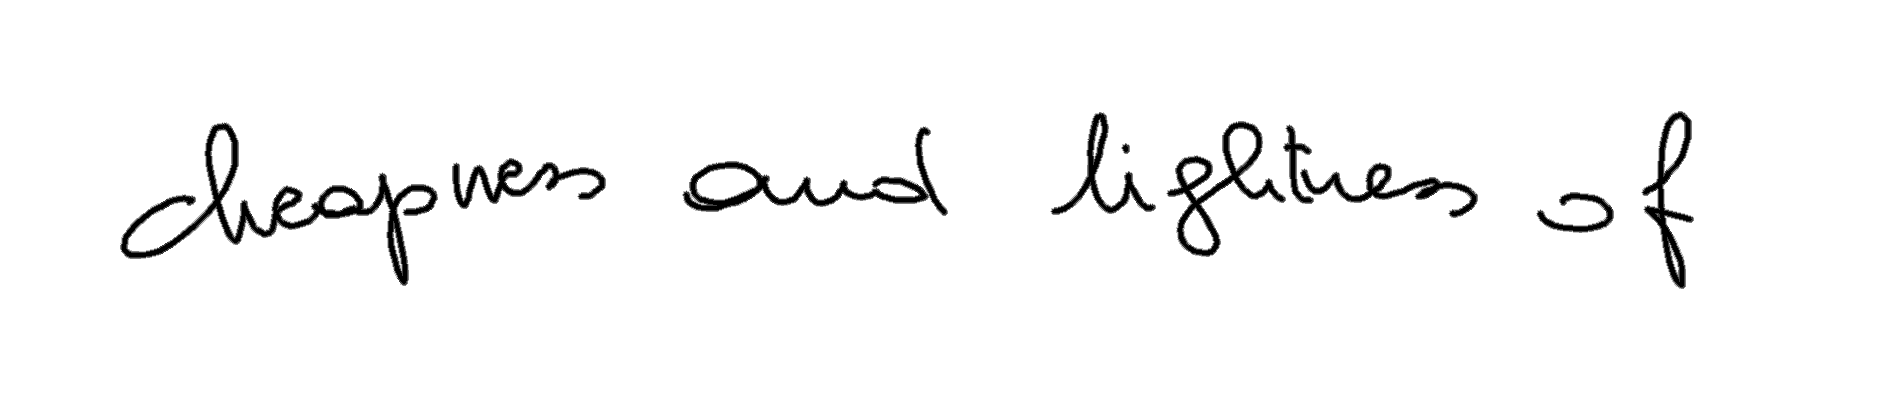 cheapness and lightness of